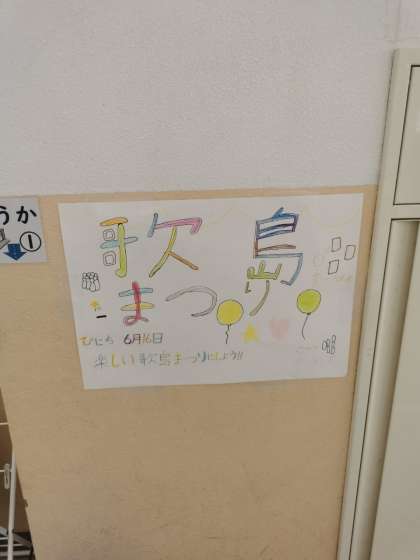 うか
①
歌島
まつり
ひにち 6月16日
楽しい歌島まつりにしよう!!